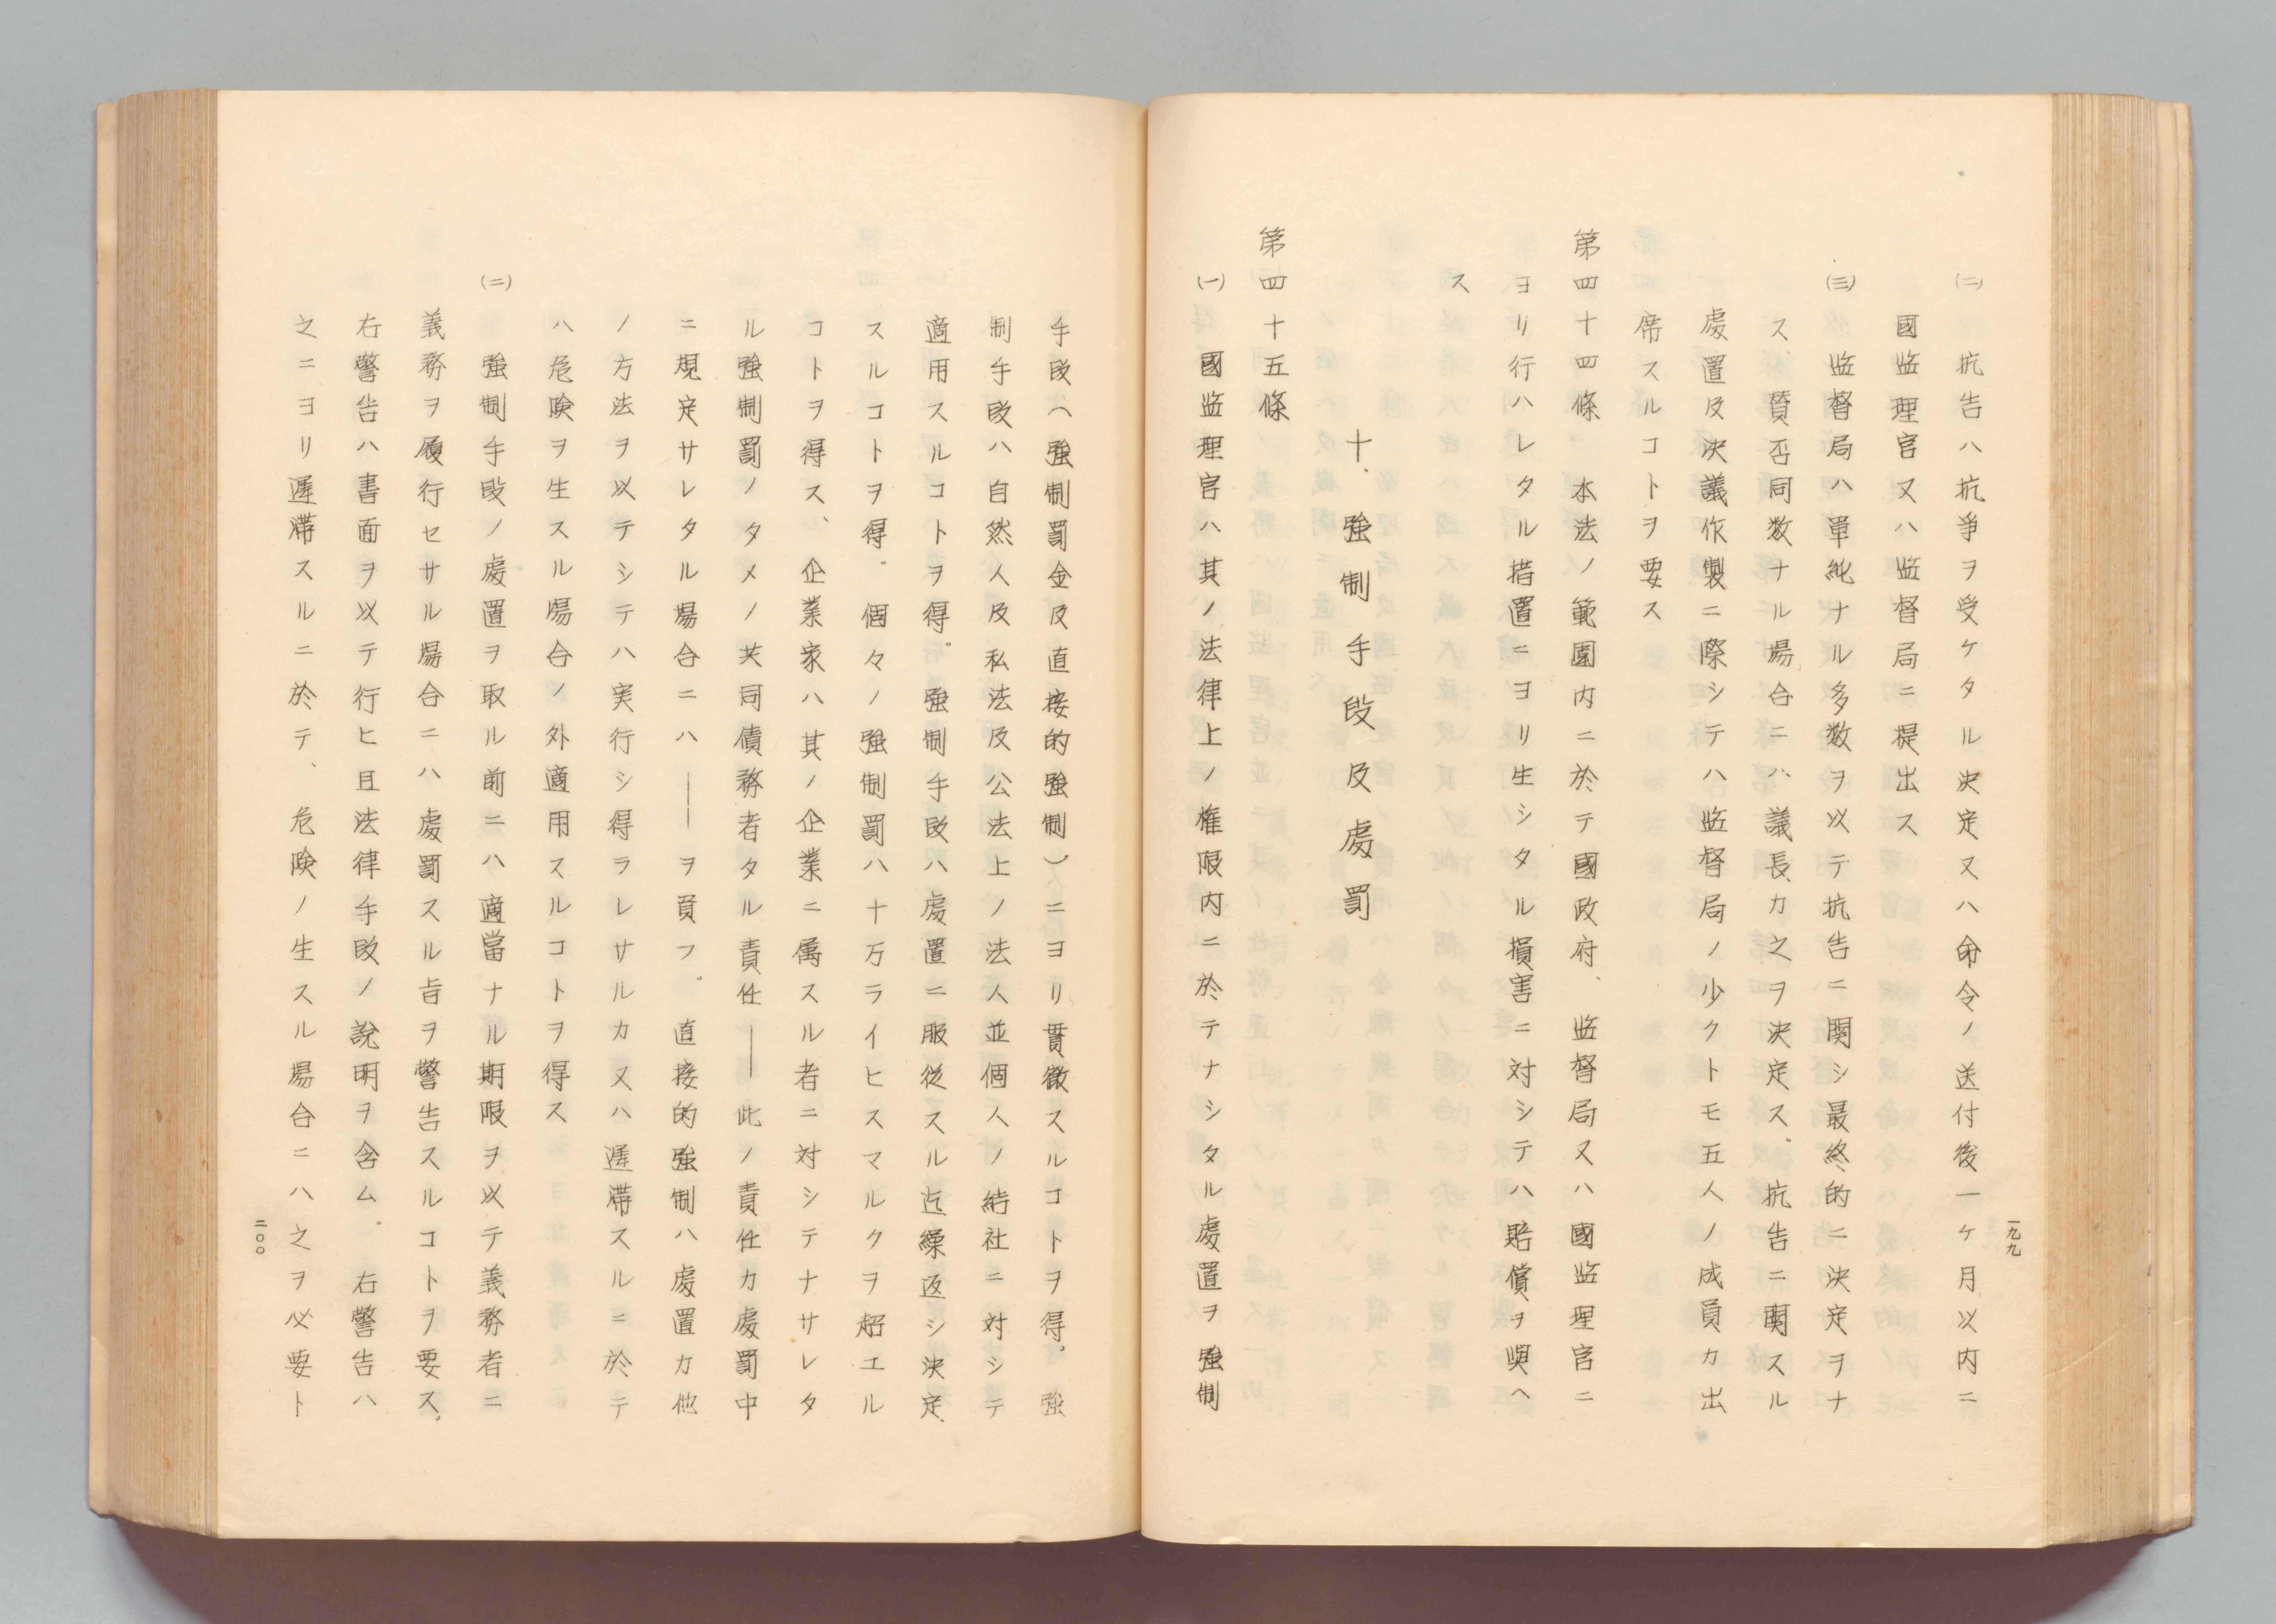 一九九
(二)　抗告ハ抗爭ヲ受ケタル決定又ハ命令ノ送付後一ケ月以内ニ
國监理官又ハ监督局ニ提出ス
(三)　监督局ハ單純ナル多数ヲ以テ抗告ニ関シ最終的ニ決定ヲナ
ス　賛否同数ナル場合ニハ議長カ之ヲ決定ス。抗告ニ関スル
處置及決議作製ニ際シテハ监督局ノ少クトモ五人ノ成員カ出
席スルコトヲ要ス
第四十四條　本法ノ範圍内ニ於テ國政府、监督局又ハ國监理官ニ
ヨリ行ハレタル措置ニヨリ生シタル損害ニ対シテハ賠償ヲ與ヘ
ス
十、強制手段及處罰
第四十五條
(一)　國监理官ハ其ノ法律上ノ権限内ニ於テナシタル處置ヲ強制
手段（強制罰金及直接的強制）ニヨリ貫徹スルコトヲ得。強
制手段ハ自然人及私法及公法上ノ法人並個人ノ結社ニ対シテ
適用スルコトヲ得。強制手段ハ處置ニ服從スル迄繰返シ決定、
スルコトヲ得。個々ノ強制罰ハ十万ライヒスマルクヲ超エル
コトヲ得ス、企業家ハ其ノ企業ニ属スル者ニ対シテナサレタ
ル強制罰ノタメノ共同債務者タル責任――此ノ責任カ處罰中
ニ規定サレタル場合ニハ――ヲ負フ。直接的強制ハ處置カ他
ノ方法ヲ以テシテハ実行シ得ラレサルカ又ハ遅滞スルニ於テ
ハ危険ヲ生スル場合ノ外適用スルコトヲ得ス
(二)　強制手段ノ處置ヲ取ル前ニハ適當ナル期限ヲ以テ義務者ニ
義務ヲ履行セサル場合ニハ處罰スル旨ヲ警告スルコトヲ要ス。
右警告ハ書面ヲ以テ行ヒ且法律手段ノ說明ヲ含ム。右警告ハ
之ニヨリ遅滞スルニ於テ、危険ノ生スル場合ニハ之ヲ必要ト
二〇〇